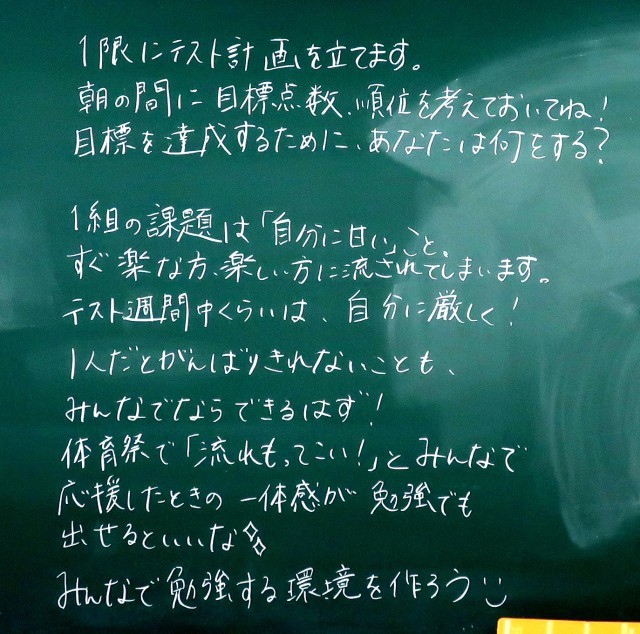 1限にテスト計画を立てます。
朝の間に目標点数、順位を考えておいてね！
目標を達成するために、あなたは何をする？
1組の課題は「自分に甘い」こと。
すぐ楽な方、楽しい方に流されてしまいます。
テスト週間中くらいは、自分に厳しく！
1人だとがんばりきれないことも、
みんなでならできるはず！
体育祭で「流れもってこい！」とみんなで
応援したときの一体感が勉強でも
出せるといいな
みんなで勉強する環境を作ろう